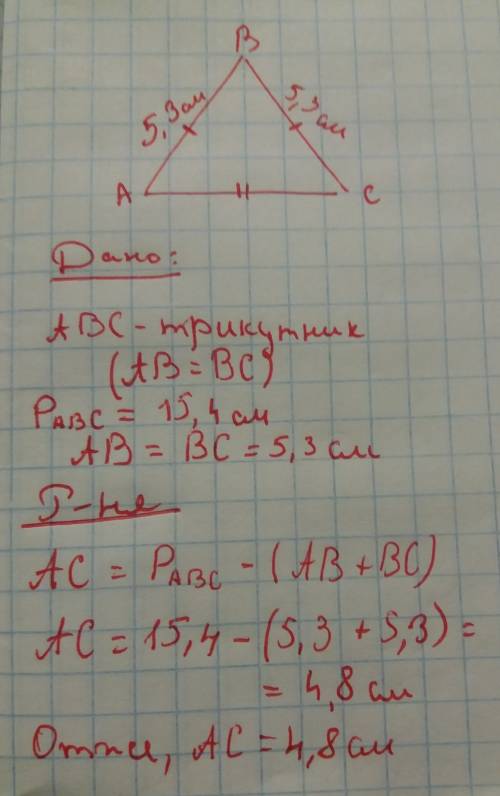 B
5,3 см 5,3 см
A C
Дано:
ABC - трикутник
(AB = BC)
PABC = 15,4 см
AB = BC = 5,3 см
Р-ня
AC = PABC - (AB + BC)
AC = 15,4 - (5,3 + 5,3) =
= 4,8 см
Отже, AC = 4,8 см